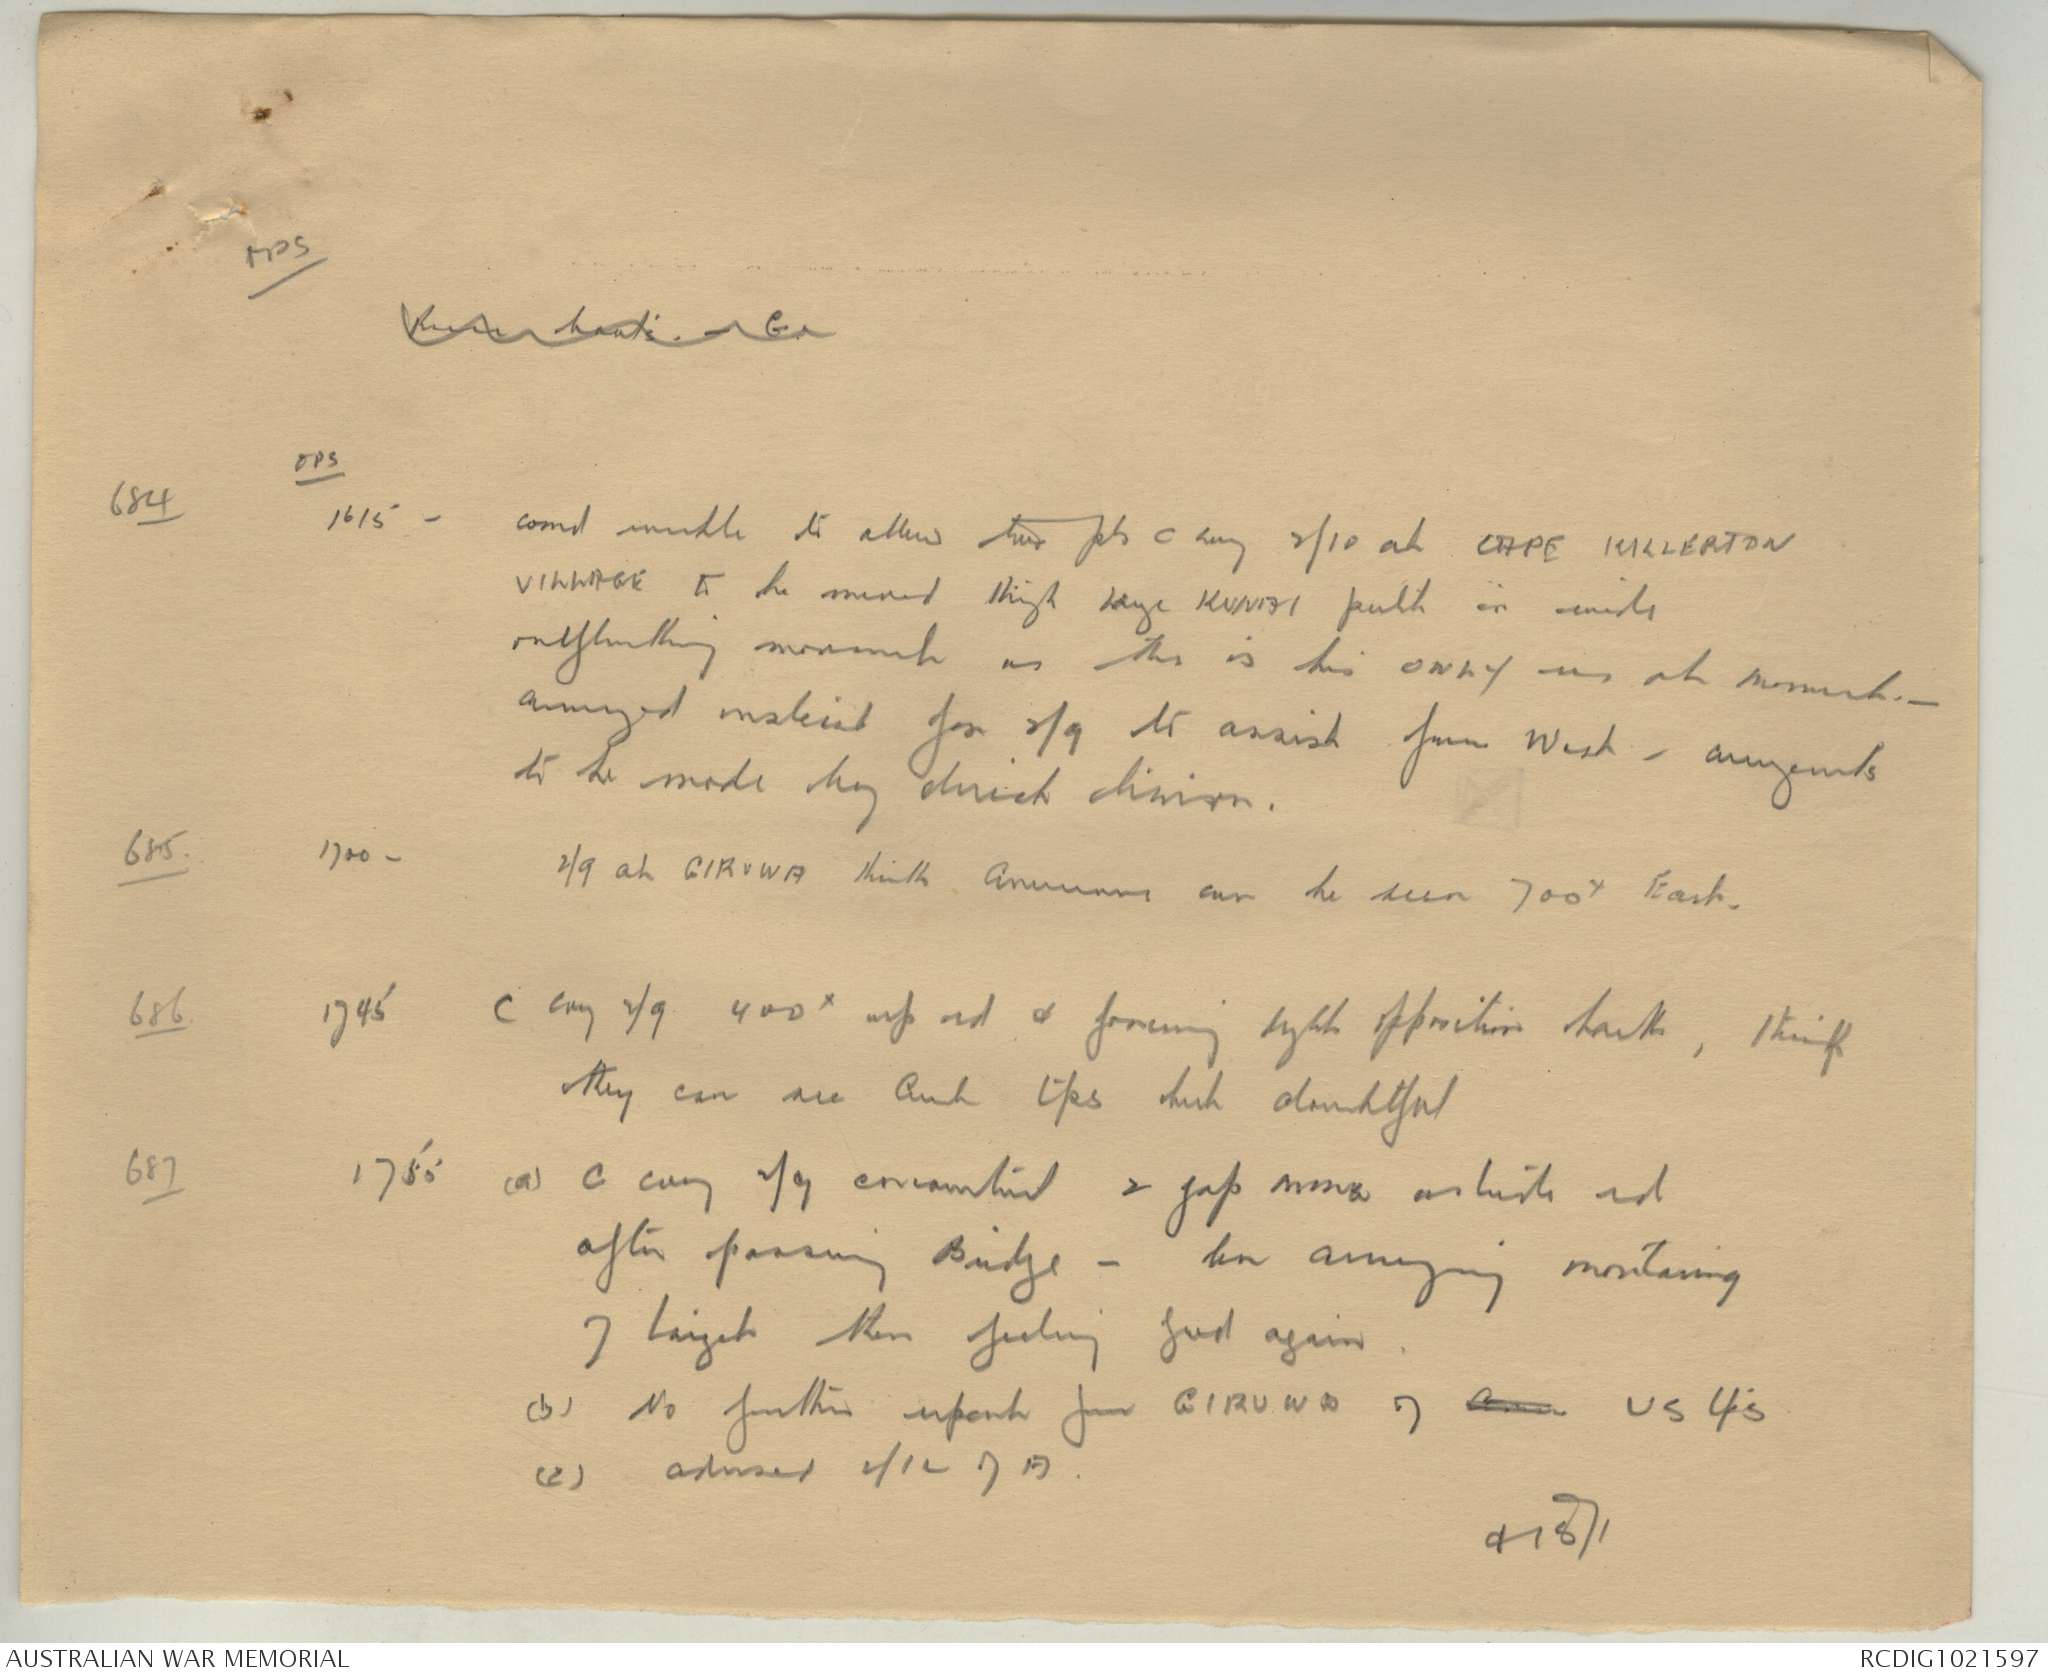 OPS
OPS
684 1615 - comd unable to allow two pls C Coy 2/10 at CAPE KILLERTON
VILLAGE to be moved thrgh large KUNAI patch in wide
outflanking movement as this is his ONLY res at moment. -
arranged instead for 2/9 to assist from West - arrangements
to be made by direct liaison.
685. 1700 - 2/9 at GIRUWA think Americans can be seen 700x East.
686. 1745 C Coy 2/9 400x up rd & forcing slight opposition back, think
they can see Aust tps but doubtful
687 1755 (a) C coy 2/9 encountered 2 jap mmgs astride rd
after passing Bridge - bn arranging mortaring
of target then feeling fwd again.
(b) No further report from GIRUWA of US tps
(c) advised 2/12 of A.
d 18/1
AUSTRALIAN WAR MEMORIAL RCDIG1021597